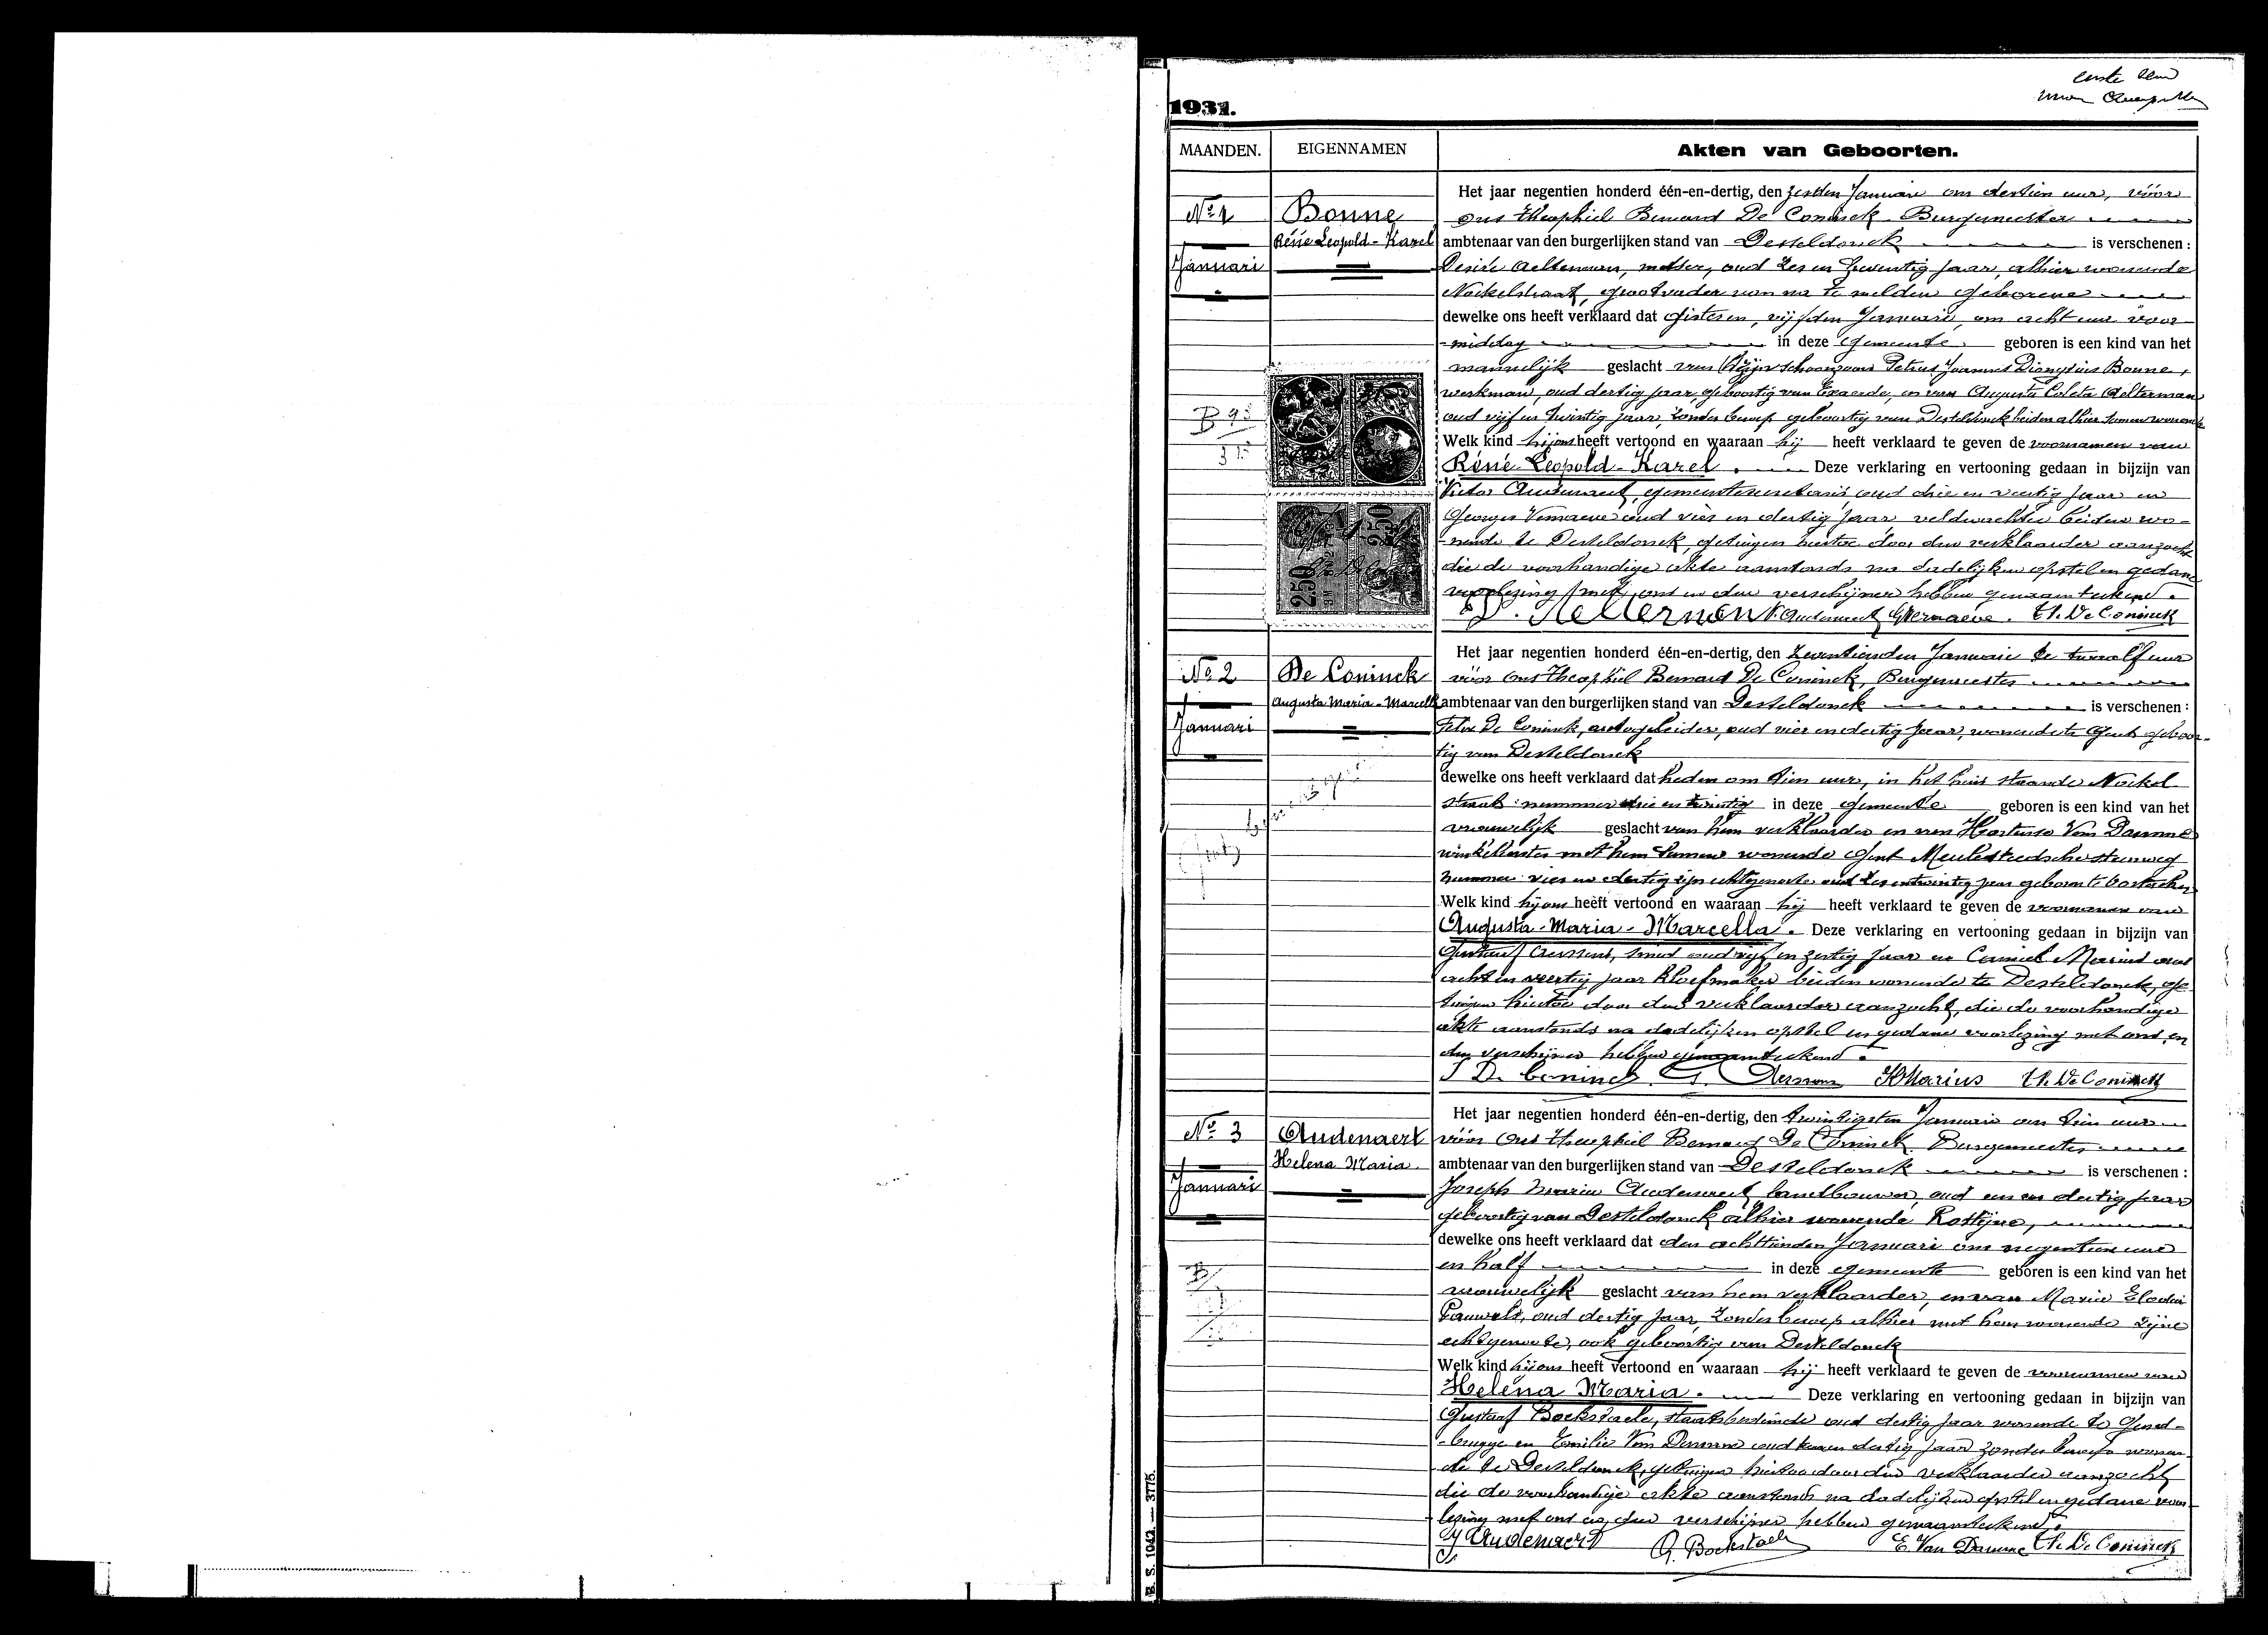 eerste
1931.
MAANDEN. EIGENNAMEN Akten van Geboorten.
No 1
Januari
Bonne
Réné Leopold-Karel
Het jaar negentien honderd één-en-dertig, den zesden Januari om dertien uur, vóór
ons Theophiel Bernard De Coninck Burgemeester
ambtenaar van den burgerlijken stand van Desteldonck is verschenen :
Desiré Aelterman, metser, oud zes en zeventig jaar, alhier wonende
Nockelstraat, grootvader van na te melden geborene
dewelke ons heeft verklaard dat gisteren, vijfden Januari, om acht uur voor
-middag in deze gemeente geboren is een kind van het
mannelijk geslacht van zijn schoonzoon Petrus Joannes Dionysius Bonne,
werkman, oud dertig jaar, geboortig van Exaerde, en van Augusta Coleta Aelterman
oud vijf en twintig jaar, zonder beroep geboortig van Desteldonck beiden alhier samen wonende
Welk kind hij ons heeft vertoond en waaraan hij heeft verklaard te geven de voornamen van
Réné-Leopold-Karel. Deze verklaring en vertooning gedaan in bijzijn van
Victor Audenaert, gemeentesecretaris, oud drie en veertig jaar en
Georges Vernaeve oud vier en dertig jaar, veldwachter beiden wo-
-nende te Desteldonck, getuigen hiertoe door den verklaarder aanzocht
die de voorhandige akte aanstonds na dadelijken opstel en gedane
voorlezing met ons en den verschijner hebben genaamteekend.
D. Aelterman V. Audenaert G Vernaeve. Th. De Coninck
B 93
2.50
2.50
No 2
Januari
De Coninck
Augusta Maria-Marcella
Het jaar negentien honderd één-en-dertig, den zeventienden Januari te twaalf uur
vóór ons Theophiel Bernard De Coninck, Burgemeester
ambtenaar van den burgerlijken stand van Desteldonck is verschenen :
Felix De Coninck, autogeleider, oud vier en dertig jaar, wonende te Gent geboor-
tig van Desteldonck
dewelke ons heeft verklaard dat heden om tien uur, in het huis staande Nockel
straat nummer drie en twintig in deze gemeente geboren is een kind van het
vrouwelijk geslacht van hem verklaarder en van Hortense Van Damme
winkelierster met hem samen wonende Gent Meulesteedsche steenweg
nummer vier en dertig zijn echtgenoote oud zes en twintig jaar geboren te Oostacker
Welk kind hij ons heeft vertoond en waaraan hij heeft verklaard te geven de voornamen van
Augusta-Maria-Marcella. Deze verklaring en vertooning gedaan in bijzijn van
Gustaaf smid oud vijf en zestig jaar en Camiel Marius oud
acht en veertig jaar kloefmaker beiden wonende te Desteldonck, ge-
tuigen hiertoe door den verklaarder aanzocht, die de voorhandige
akte aanstonds na dadelijken opstel en gedane voorlezing met ons en
den verschijner hebben genaamteekend.
De Coninck G. KMarius Th. De Coninck
No 3
Januari
Audenaert
Helena Maria
Het jaar negentien honderd één-en-dertig, den twintigsten Januari om tien uur
vóór ons Theophiel Bernard De Coninck Burgemeester
ambtenaar van den burgerlijken stand van Desteldonck is verschenen :
Joseph Maria Audenaert, landbouwer, oud een en dertig jaar
geboortig van Desteldonck alhier wonende Rostijne,
dewelke ons heeft verklaard dat den achttienden Januari om negentien uur
en half in deze gemeente geboren is een kind van het
vrouwelijk geslacht van hem verklaarder, en van Maria Elodie
Pauwels, oud dertig jaar, zonder beroep alhier met hem wonende zijne
echtgenoote, ook geboortig van Desteldonck
Welk kind hij ons heeft vertoond en waaraan hij heeft verklaard te geven de voornamen van
Helena Maria. Deze verklaring en vertooning gedaan in bijzijn van
Gustaaf Bockstaele, staatsbediende oud dertig jaar wonende te Gend-
-brugge en Emilie Van Damme oud en dertig jaar zonder beroep wonen-
de te Desteldonck, getuigen hiertoe door den verklaarder aanzocht,
die de voorhandige akte aanstonds na dadelijken opstel en gedane voor-
lezing met ons en den verschijner hebben genaamteekend.
J Audenaert G. Bockstaele E. Van Damme Th. De Coninck
B
B. S. 1042. — 3775.